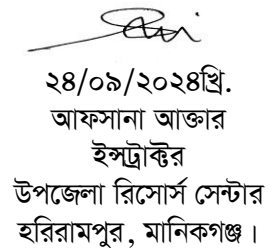 ২৪/০৯/২০২৪খ্রি.
আফসানা আক্তার
ইন্সট্রাক্টর
উপজেলা রিসোর্স সেন্টার
হরিরামপুর, মানিকগঞ্জ।